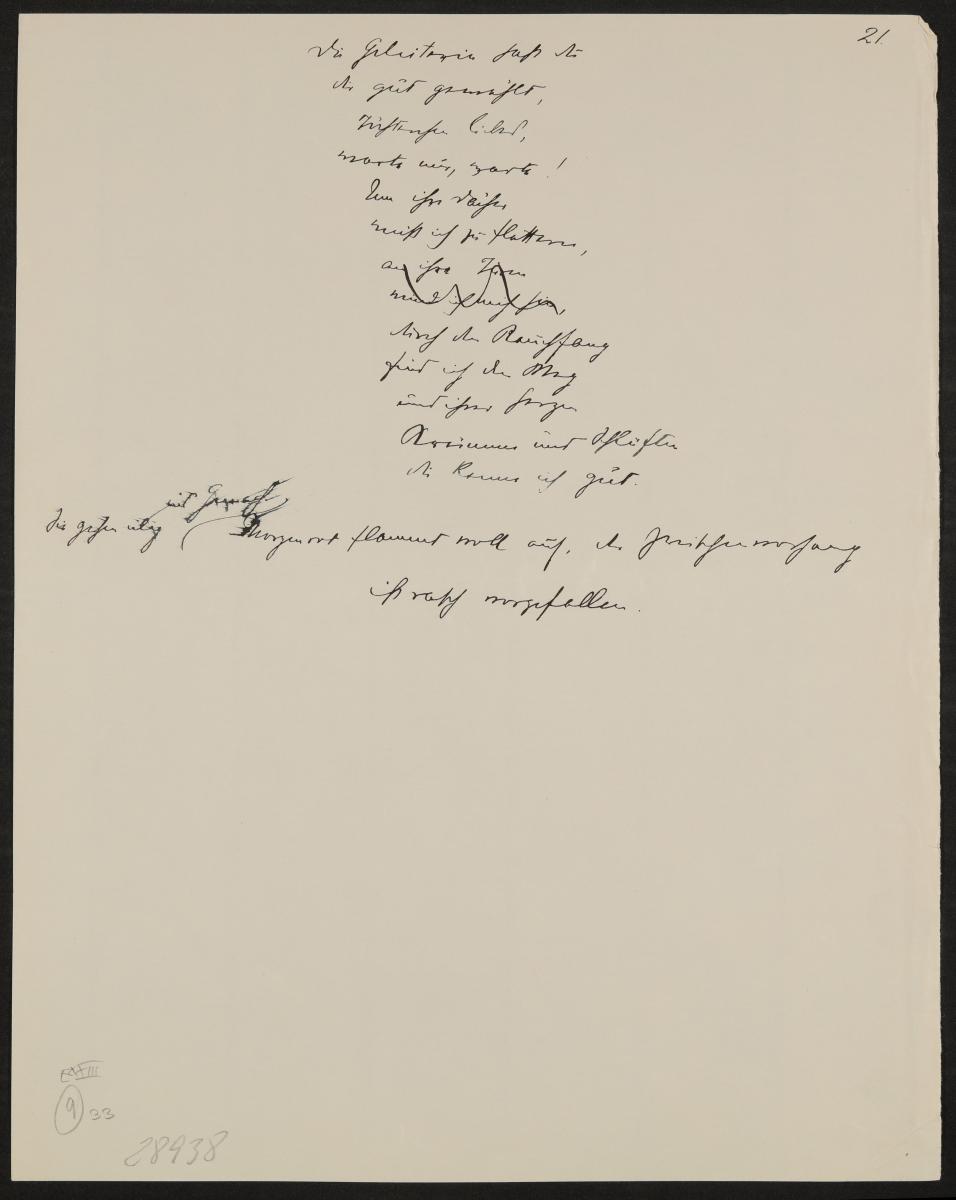 21.
Die Geleiterin hast du
dir gut gewählt,
Töchterchen liebes,
warte nur, warte!
Um ihre Däche
weiß ich zu flattern,
an ihre Türen
durch den Rauchfang
find ich den Weg
und ihrer Herzen
Krümmen und Schlüfte
die kenne ich gut.
mit
Sie gehen eilig
Morgenrot flammt voll auf, der Zwischenvorhang
ist rasch vorgefallen.
9 33
28938